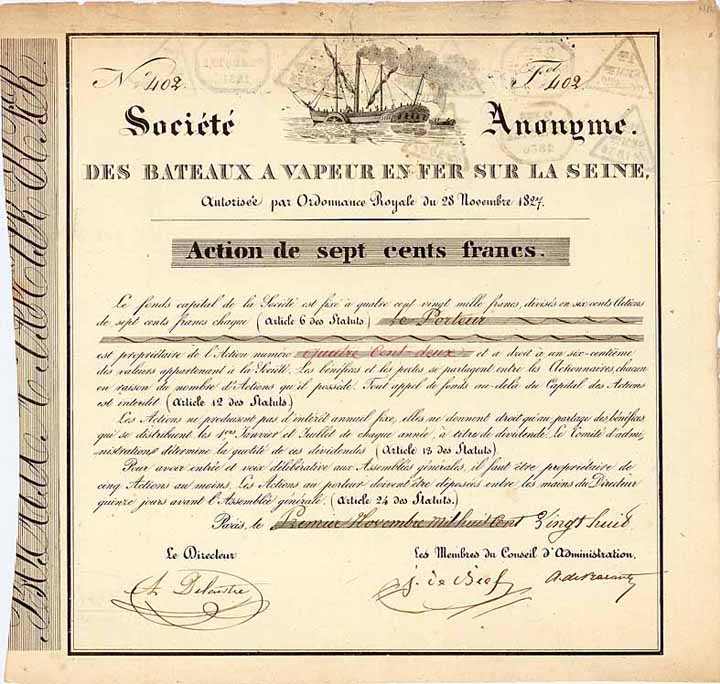 N.º 402. F.ol 402.
Société Anonyme.
DES BATEAUX A VAPEUR EN FER SUR LA SEINE,
Autorisée par Ordonnance Royale du 28 Novembre 1827.
Action de sept cents francs.
Le fonds capital de la Société est fixé à quatre cent vingt mille francs, divisés en six cents Actions
de sept cents francs chaque (Article 6 des Statuts.) Le Porteur
est propriétaire de l'Action numéro quatre Cent deux et a droit à un six-centième
des valeurs appartenant à la Société. Les bénéfices et les pertes se partagent entre les Actionnaires chacun
en raison du nombre d'Actions qu'il possède. Tout appel de fonds au-delà du Capital des Actions
est interdit (Article 12 des Statuts.)
Les Actions ne produisent pas d'intérêt annuel fixe, elles ne donnent droit qu'au partage des bénéfices
qui se distribuent les 1ers Janvier et Juillet de chaque année, à titre de dividende. Le Comité d'admi-
nistration détermine la quotité de ces dividendes (Article 13 des Statuts).
Pour avoir entrée et voix délibérative aux Assemblées générales, il faut être propriétaire de
cinq Actions au moins. Les Actions au porteur doivent être déposées entre les mains du Directeur
quinze jours avant l'Assemblée générale. (Article 24 des Statuts.)
Paris, le Premier Novembre mil huit Cent Vingt huit
Le Directeur Les Membres du Conseil d'Administration.